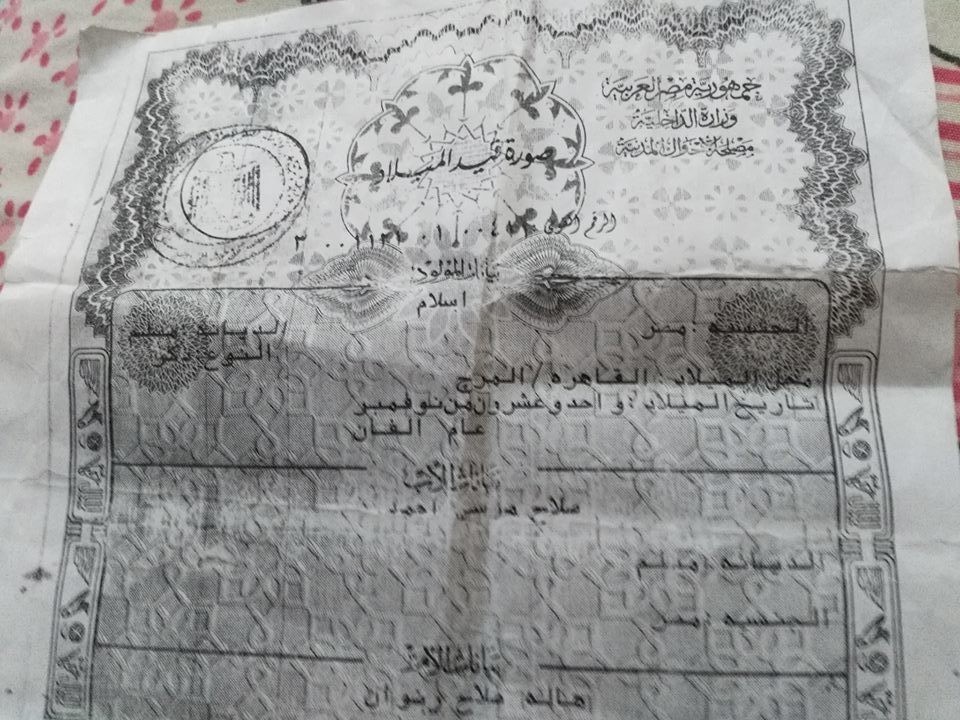 جمهورية مصر العربية
وزارة الداخلية
مصلحة الأحوال المدنية
صورة قيد الميلاد
الرقم القومى
بيانات المولود:
اسلام
الجنسيه :مصر
النوع :ذكر
محل الميلاد :القاهره/المرج
تاريخ الميلاد :واحدوعشرون من نوفمبر
عام الفان
بيانات الأب:
صلاح مرسى احمد
الديانه :مسلم
الجنسيه :مصر
بيانات الأم:
هاله صلاح رضوان